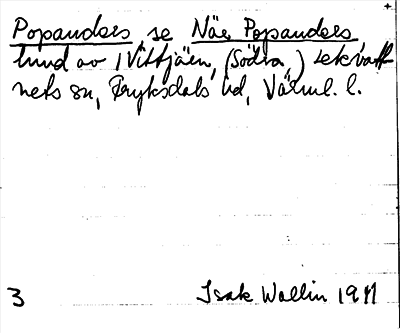 Popanders, se När Popanders
lund av i Vittjärn, (Södra,) Lekvatt-
nets sn, Fryksdals hd, Värml. l.
3 Isak Wallin 1911